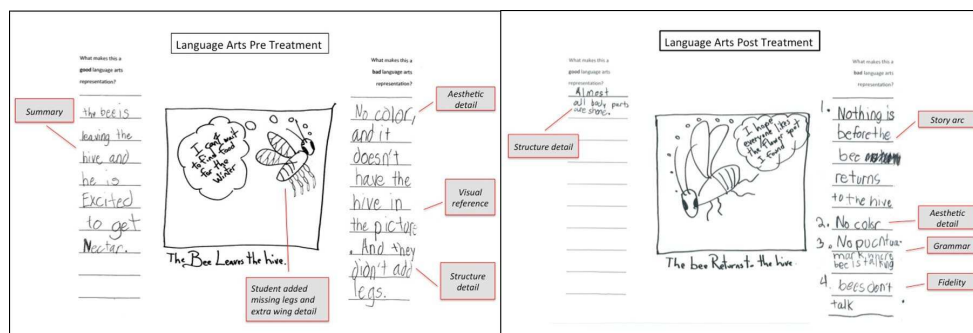 Language Arts Pre Treatment
What makes this a
good language arts
representation?
the bee is
leaving the
hive and
he is
Excited
to get
Nectar.
Summary
I can't wait
to find food
for the
winter
The Bee Leaves the hive.
Student added
missing legs and
extra wing detail
What makes this a
bad language arts
representation?
No color,
and it
doesn't
have the
hive in
the picture
. And they
didn't add
legs.
Aesthetic
detail
Visual
reference
Structure
detail
Language Arts Post Treatment
What makes this a
good language arts
representation?
Almost
all body parts
are shone.
Structure detail
I hope
everyone likes
the flower spot
I found
The bee Returns to the hive.
What makes this a
bad language arts
representation?
1. Nothing is
before the
bee
returns
to the hive
2. No color
3. No puctua-
mark, where
bee is talking
4. bees don't
talk
Story arc
Aesthetic
detail
Grammar
Fidelity